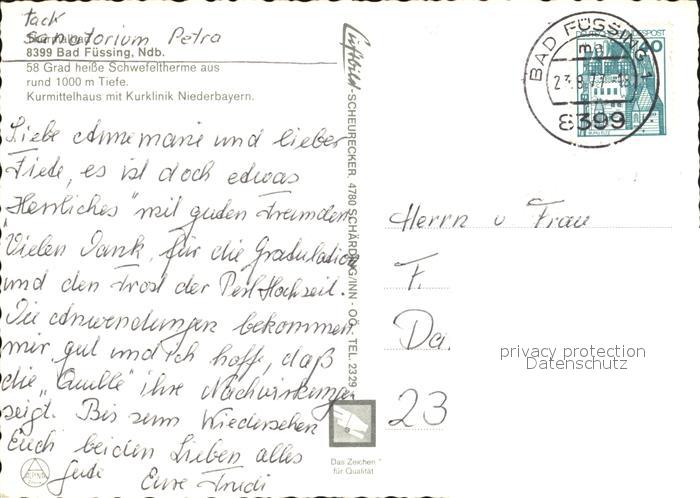 Tack
Sanatorium Petra
Thermalbad
8399 Bad Füssing, Ndb.
58 Grad heiße Schwefeltherme aus
rund 1000 m Tiefe.
Kurmittelhaus mit Kurklinik Niederbayern.
Liebe Annemarie und lieber
Fiede, es ist doch etwas
Herrliches" mit guden Freunden
Vielen Dank, für die Gratulation
und den Trost der Perl-Hochzeit.
Die Anwendungen bekommen
mir gut und ich hoffe, daß
die "Quelle" ihre Nachwirkungen
zeigt. Bis zum Wiedersehen
Euch beiden Lieben alles
Gute Eure Trudi
Luftbild-SCHEURECKER, 4780 SCHÄRDING/INN - OÖ., TEL. 2329
Das Zeichen
für Qualität
BAD FÜSSING 1
ma
23.8.77-18
8399
DEUTSCHE BUNDESPOST
40
Herrn u Frau
F.
Da.
23
privacy protection
Datenschutz